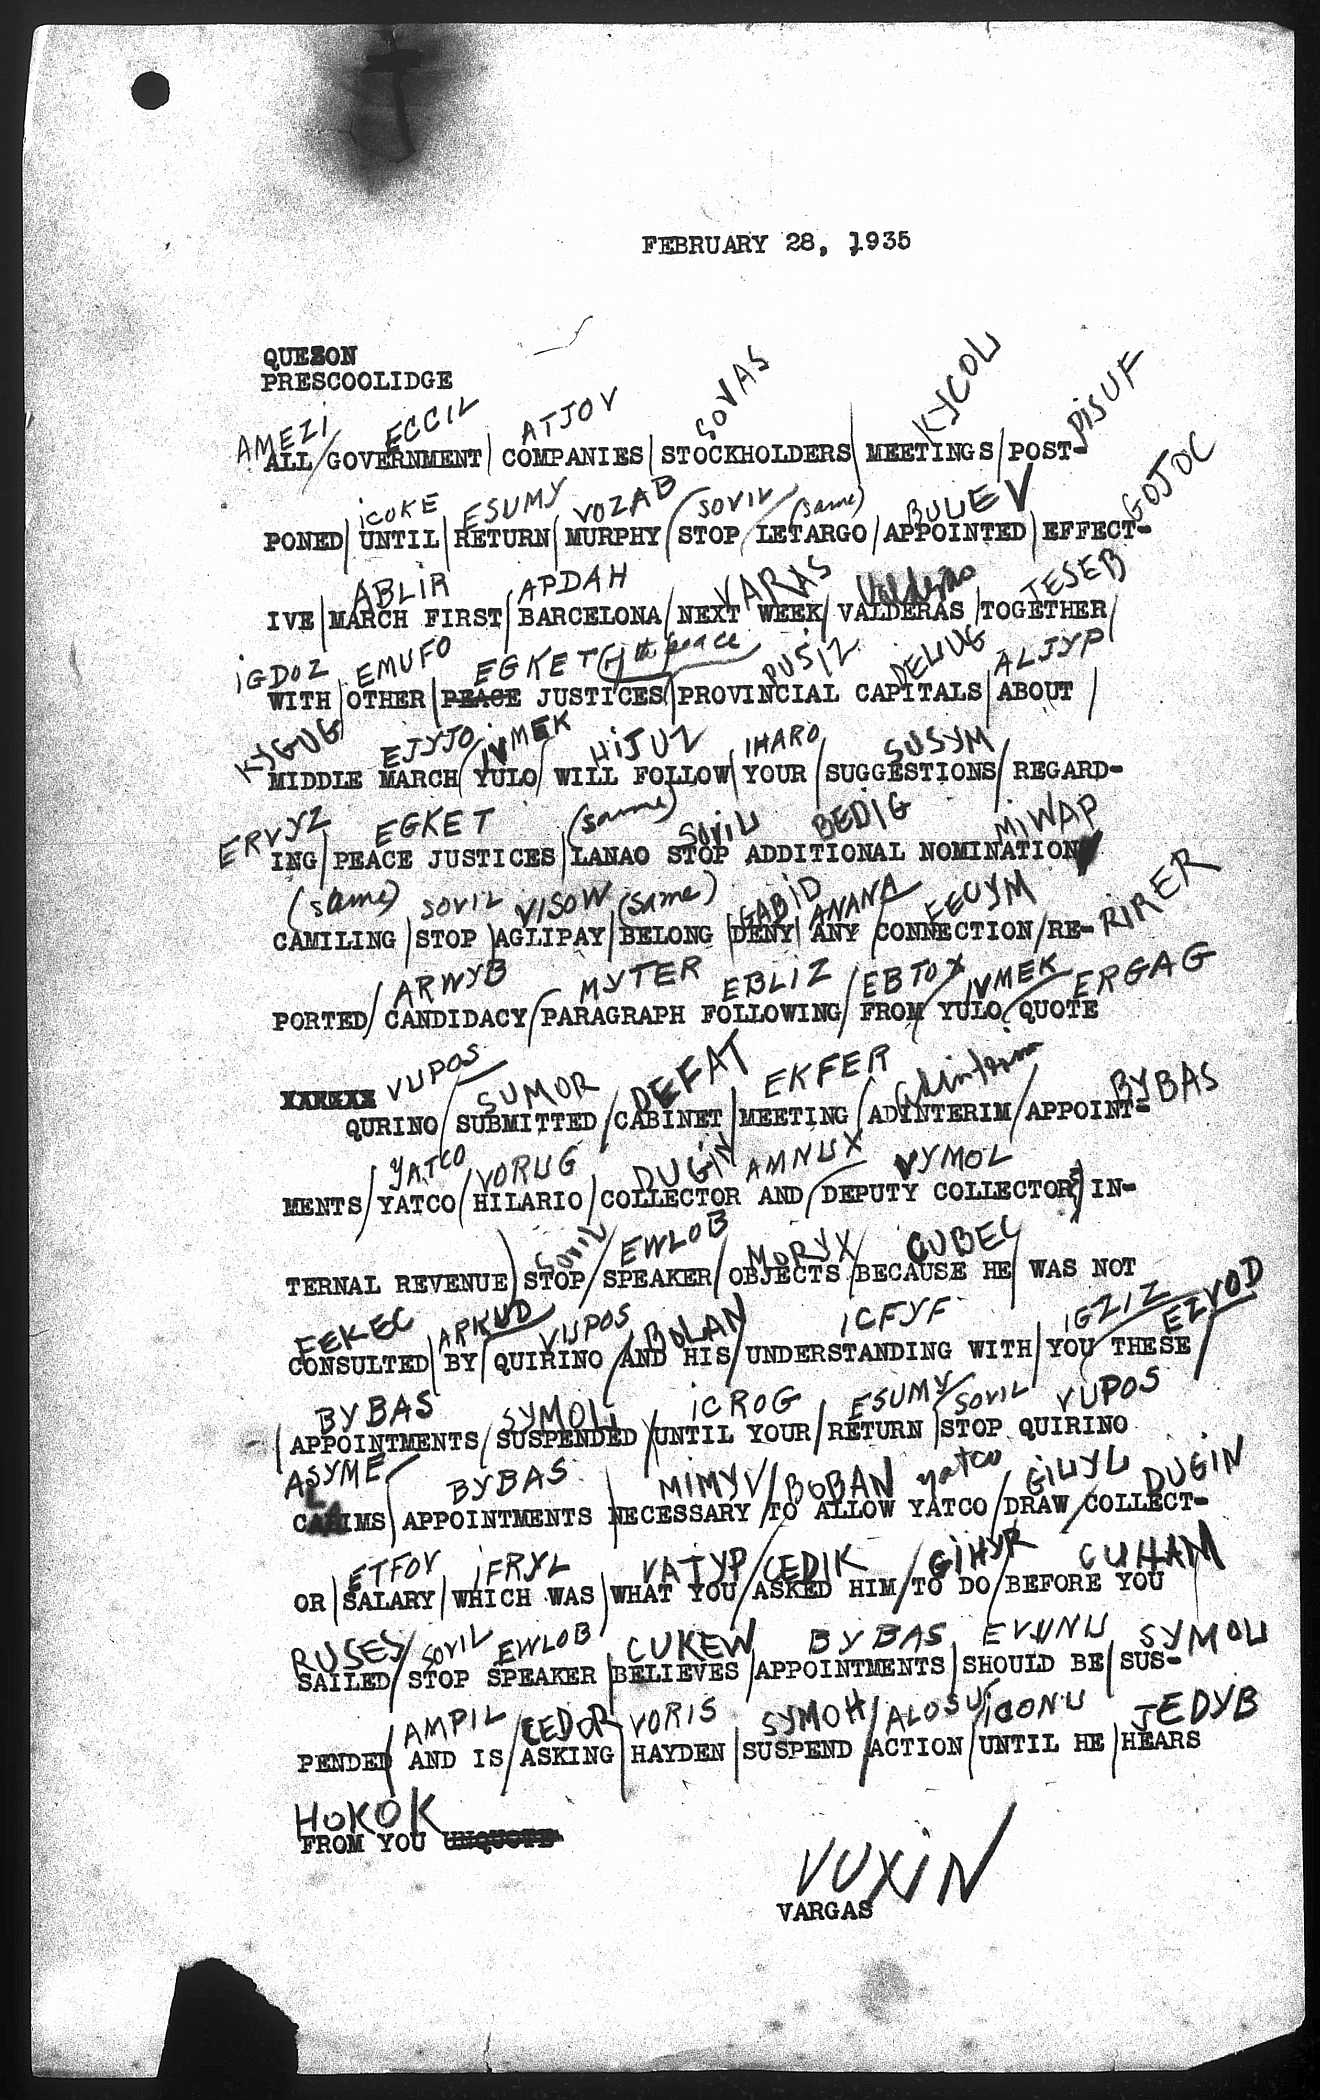 FEBRUARY 28, 1935
QUEZON
PRESCOOLIDGE
AMEZI ECCIL ATJOV SOVAS KYCOL PISUF
ALL/GOVERNMENT/COMPANIES/STOCKHOLDERS/MEETINGS/POST-
ICOKE ESUMY VOZAB SOVIL (same) BULEV GOJOC
PONED/UNTIL/RETURN/MURPHY/STOP/LETARGO/APPOINTED/EFFECT-
ABLIR APDAH VARAS Valderas JESEB
IVE/MARCH FIRST/BARCELONA/NEXT WEEK/VALDERAS/TOGETHER/
IGDOZ EMUFO EGKET PUSIZ DELUG ALJYP
WITH/OTHER/PEACE JUSTICES/PROVINCIAL CAPITALS/ABOUT/
KYGUG EJYJO IVMEK HIJUZ IHARO SUSYM
MIDDLE MARCH/YULO/WILL FOLLOW/YOUR/SUGGESTIONS/REGARD-
ERVYZ EGKET (same) SOVIL BEDIG MIWAP
ING/PEACE JUSTICES/LANAO STOP ADDITIONAL NOMINATION
(same) SOVIL VISOW (same) GABID ANANA EECYM RIRER
CAMILING/STOP/AGLIPAY/BELONG/DENY/ANY/CONNECTION/RE-
ARWYB MYTER EBLIZ EBTOX IVMEK ERGAG
PORTED/CANDIDACY/PARAGRAPH FOLLOWING/FROM/YULO/QUOTE
VUPOS SUMOR DEFAT EKFER Adinterim BYBAS
QURINO/SUBMITTED/CABINET/MEETING/ADINTERIM/APPOINT-
YATCO VORUG DUGIN AMNUX VYMOL
MENTS/YATCO/HILARIO/COLLECTOR AND/DEPUTY COLLECTOR/IN-
SOVIL EWLOB MORYX CUBEC
TERNAL REVENUE/STOP/SPEAKER/OBJECTS/BECAUSE HE/WAS NOT
EEKEC ARKUD VUPOS BOLAN ICFYF IGZIZ EZVOD
CONSULTED/BY/QUIRINO/AND HIS/UNDERSTANDING WITH/YOU/THESE/
BYBAS SYMOL ICROG ESUMY SOVIL VUPOS
/APPOINTMENTS/SUSPENDED/UNTIL YOUR/RETURN/STOP QUIRINO
ASYME BYBAS MIMYV BOBAN yatco GILYL DUGIN
CLAIMS/APPOINTMENTS/NECESSARY/TO ALLOW YATCO/DRAW/COLLECT-
ETFOV IFRYL VATYP CEDIK GIHYR CUHAM
OR/SALARY/WHICH WAS/WHAT YOU/ASKED HIM/TO DO/BEFORE YOU
RUSES SOVIL EWLOB CUKEW BYBAS EVUNU SYMOL
SAILED/STOP SPEAKER/BELIEVES/APPOINTMENTS/SHOULD BE/SUS-
AMPIL CEDOR VORIS SYMOH ALOSU ICONU JEDYB
PENDED/AND IS/ASKING/HAYDEN/SUSPEND/ACTION/UNTIL HE/HEARS
HOKOK
FROM YOU UNQUOTE
VUXIN
VARGAS